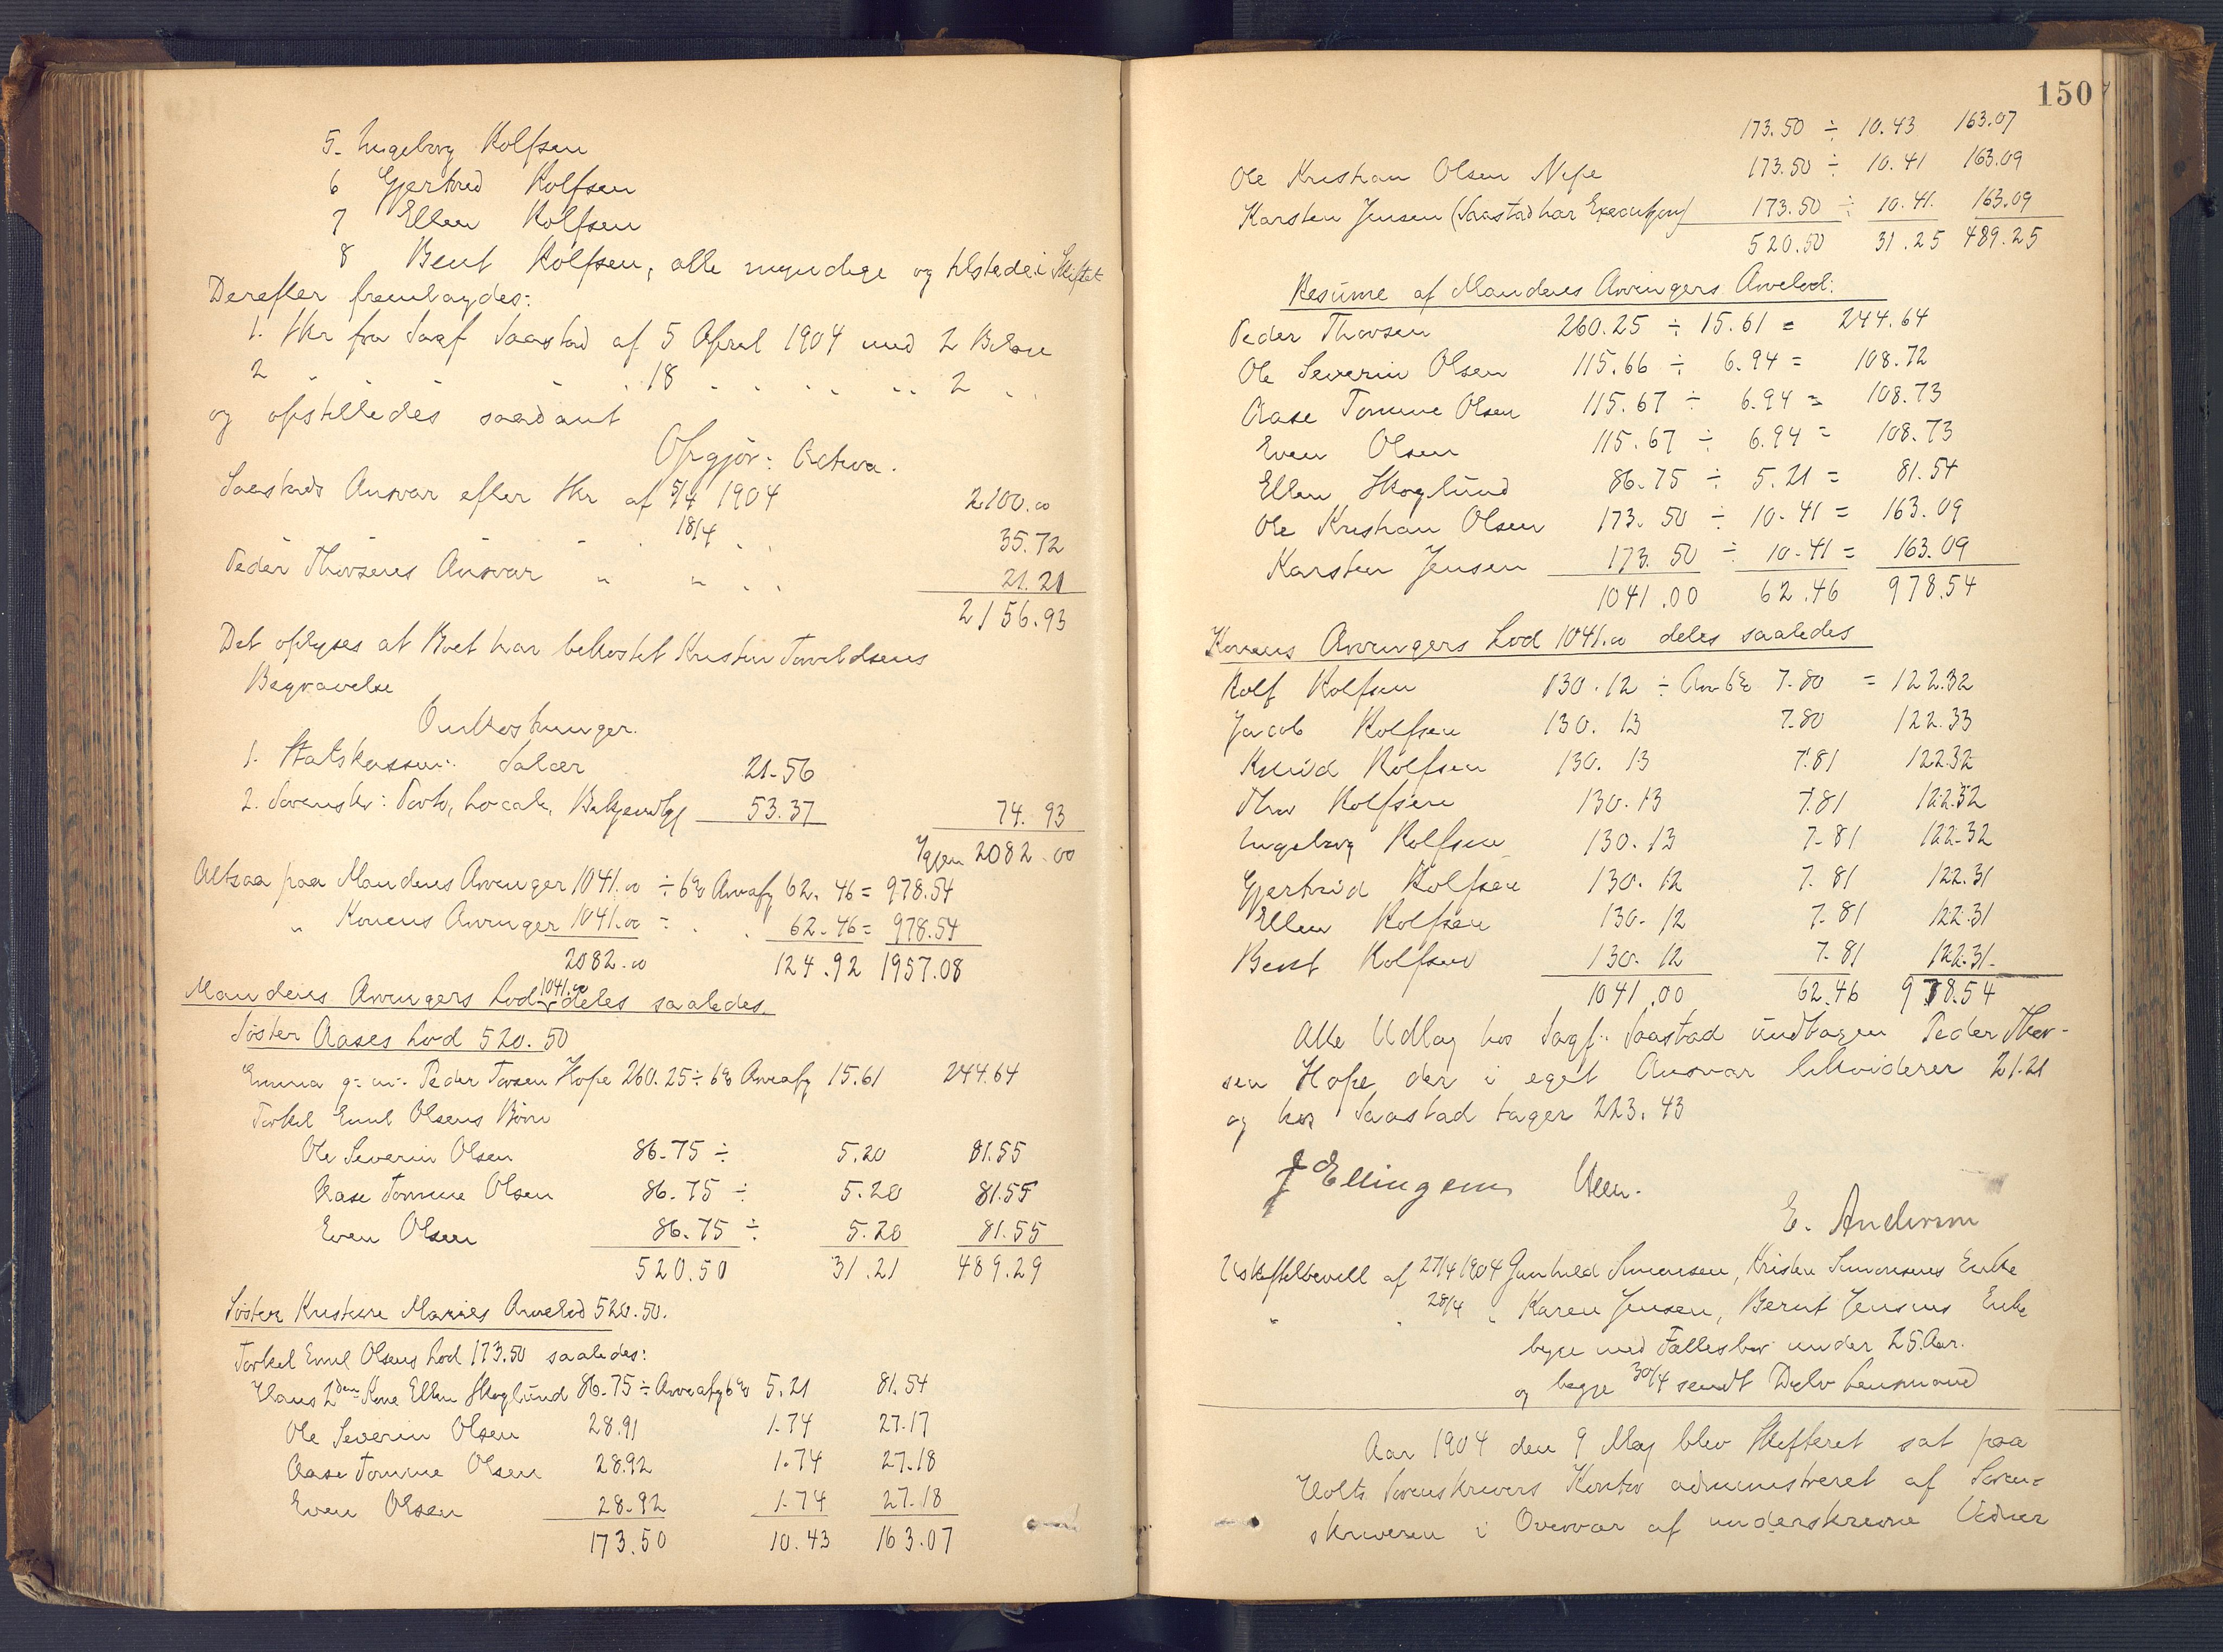 5. Ingeborg Rolfsen
6 Gjertrud Rolfsen
7 Ellen Rolfsen
8 Bent Rolfsen, alle myndige og tilstede i Skiftet
Derefter fremlagdes:
1. Skr fra Sagf Saastad af 5 April 1904 med 2 Bilage
2 " " " " 18 " " " " 2 "
og opstilledes saadant
Opgjør: Activa.
Saastads Ansvar efter Skr af 5/4 1904 2100.00
" " " 18/4 " " 35.72
Peder Thorsens Ansvar " " " " 21.21
2156.93
Det oplyses at Boet har bekostet Kristen Tarildsens
Begravelse
Omkostninger.
1. Statskassen: Salær 21.56
2. Sorenskr: Porto, Locale, Bekjendtg 53.37 74.93
Igjen 2082.00
Altsaa paa Mandens Arvinger 1041.00 ÷ 6% Arveafg 62.46 = 978.54
" Konens Arvinger 1041.00 ÷ " " 62.46 = 978.54
2082.00 124.92 1957.08
Mandens Arvingers Lod 1041.00 deles saaledes.
Søster Aases Lod 520.50
Emma g: m: Peder Torsen Hope 260.25 ÷ 6% Arveafg 15.61 244.64
Torkel Emil Olsens Børn
Ole Severin Olsen 86.75 ÷ 5.20 81.55
Aase Tomine Olsen 86.75 ÷ 5.20 81.55
Even Olsen 86.75 ÷ 5.20 81.55
520.50 31.21 489.29
Søster Kristine Maries Arvelod 520.50.
Torkel Emil Olsens Lod 173.50 saaledes:
Hans 2den Kone Ellen Skoglund 86.75 ÷ Arveafg 6% 5.21 81.54
Ole Severin Olsen 28.91 1.74 27.17
Aase Tomine Olsen 28.92 1.74 27.18
Even Olsen 28.92 1.74 27.18
173.50 10.43 163.07
150
173.50 ÷ 10.43 163.07
Ole Kristian Olsen Nipe 173.50 ÷ 10.41 163.09
Karsten Jensen (Saastad har Execution) 173.50 ÷ 10.41. 163.09
520.50 31.25 489.25
Resume af Mandens Arvingers Arvelod:
Peder Thorsen 260.25 ÷ 15.61 = 244.64
Ole Severin Olsen 115.66 ÷ 6.94 = 108.72
Aase Tomine Olsen 115.67 ÷ 6.94 = 108.73
Even Olsen 115.67 ÷ 6.94 = 108.73
Ellen Skoglund 86.75 ÷ 5.21 = 81.54
Ole Kristian Olsen 173.50 ÷ 10.41 = 163.09
Karsten Jensen 173.50 ÷ 10.41 = 163.09
1041.00 62.46 978.54
Konens Arvingers Lod 1041.00 deles saaledes
Rolf Rolfsen 130.12 ÷ Arv 6% 7.80 = 122.32
Jacob Rolfsen 130.13 7.80 122.33
Knud Rolfsen 130.13 7.81 122.32
Thor Rolfsen 130.13 7.81 122.32
Ingeborg Rolfsen 130.13 7.81 122.32
Gjertrud Rolfsen 130.12 7.81 122.31
Ellen Rolfsen 130.12 7.81 122.31
Bent Rolfsen 130.12 7.81 122.31
1041.00 62.46 978.54
Alle Udlag hos Sagf: Saastad undtagen Peder Thor-
sen Hope, der i eget Ansvar likviderer 21.21
og hos Saastad tager 223.43
J Ellingsen
E. Andersen
Uskiftetbevill af 27/4 1904 Gunhild Simonsen, Kristen Simonsens Enke
" " 28/4 " Karen Jensen, Bernt Jensens Enke
begge med Fællesbørn under 25 Aar.
og begge 30/4 sendt Dybv Lensmand
Aar 1904 den 9 Maj blev Skifteret sat paa
Holts Sorenskrivers Kontor administreret af Soren-
skriveren i Overvær af underskrevne Vidner